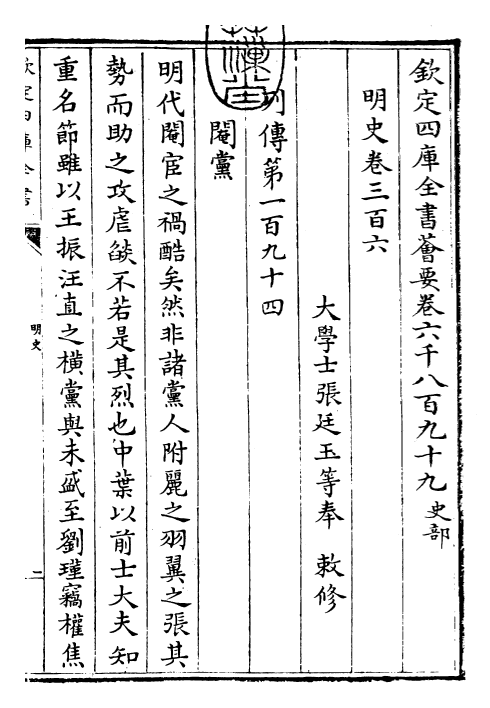 欽定四庫全書薈要卷六千八百九十九 史部
明史卷三百六
大學士張廷玉等奉 敕修
列傳第一百九十四
閹黨
明代閹宦之禍酷矣然非諸黨人附麗之羽翼之張其
勢而助之攻虐燄不若是其烈也中葉以前士大夫知
重名節雖以王振汪直之橫黨與未盛至劉瑾竊權焦
欽定四庫全書
明史